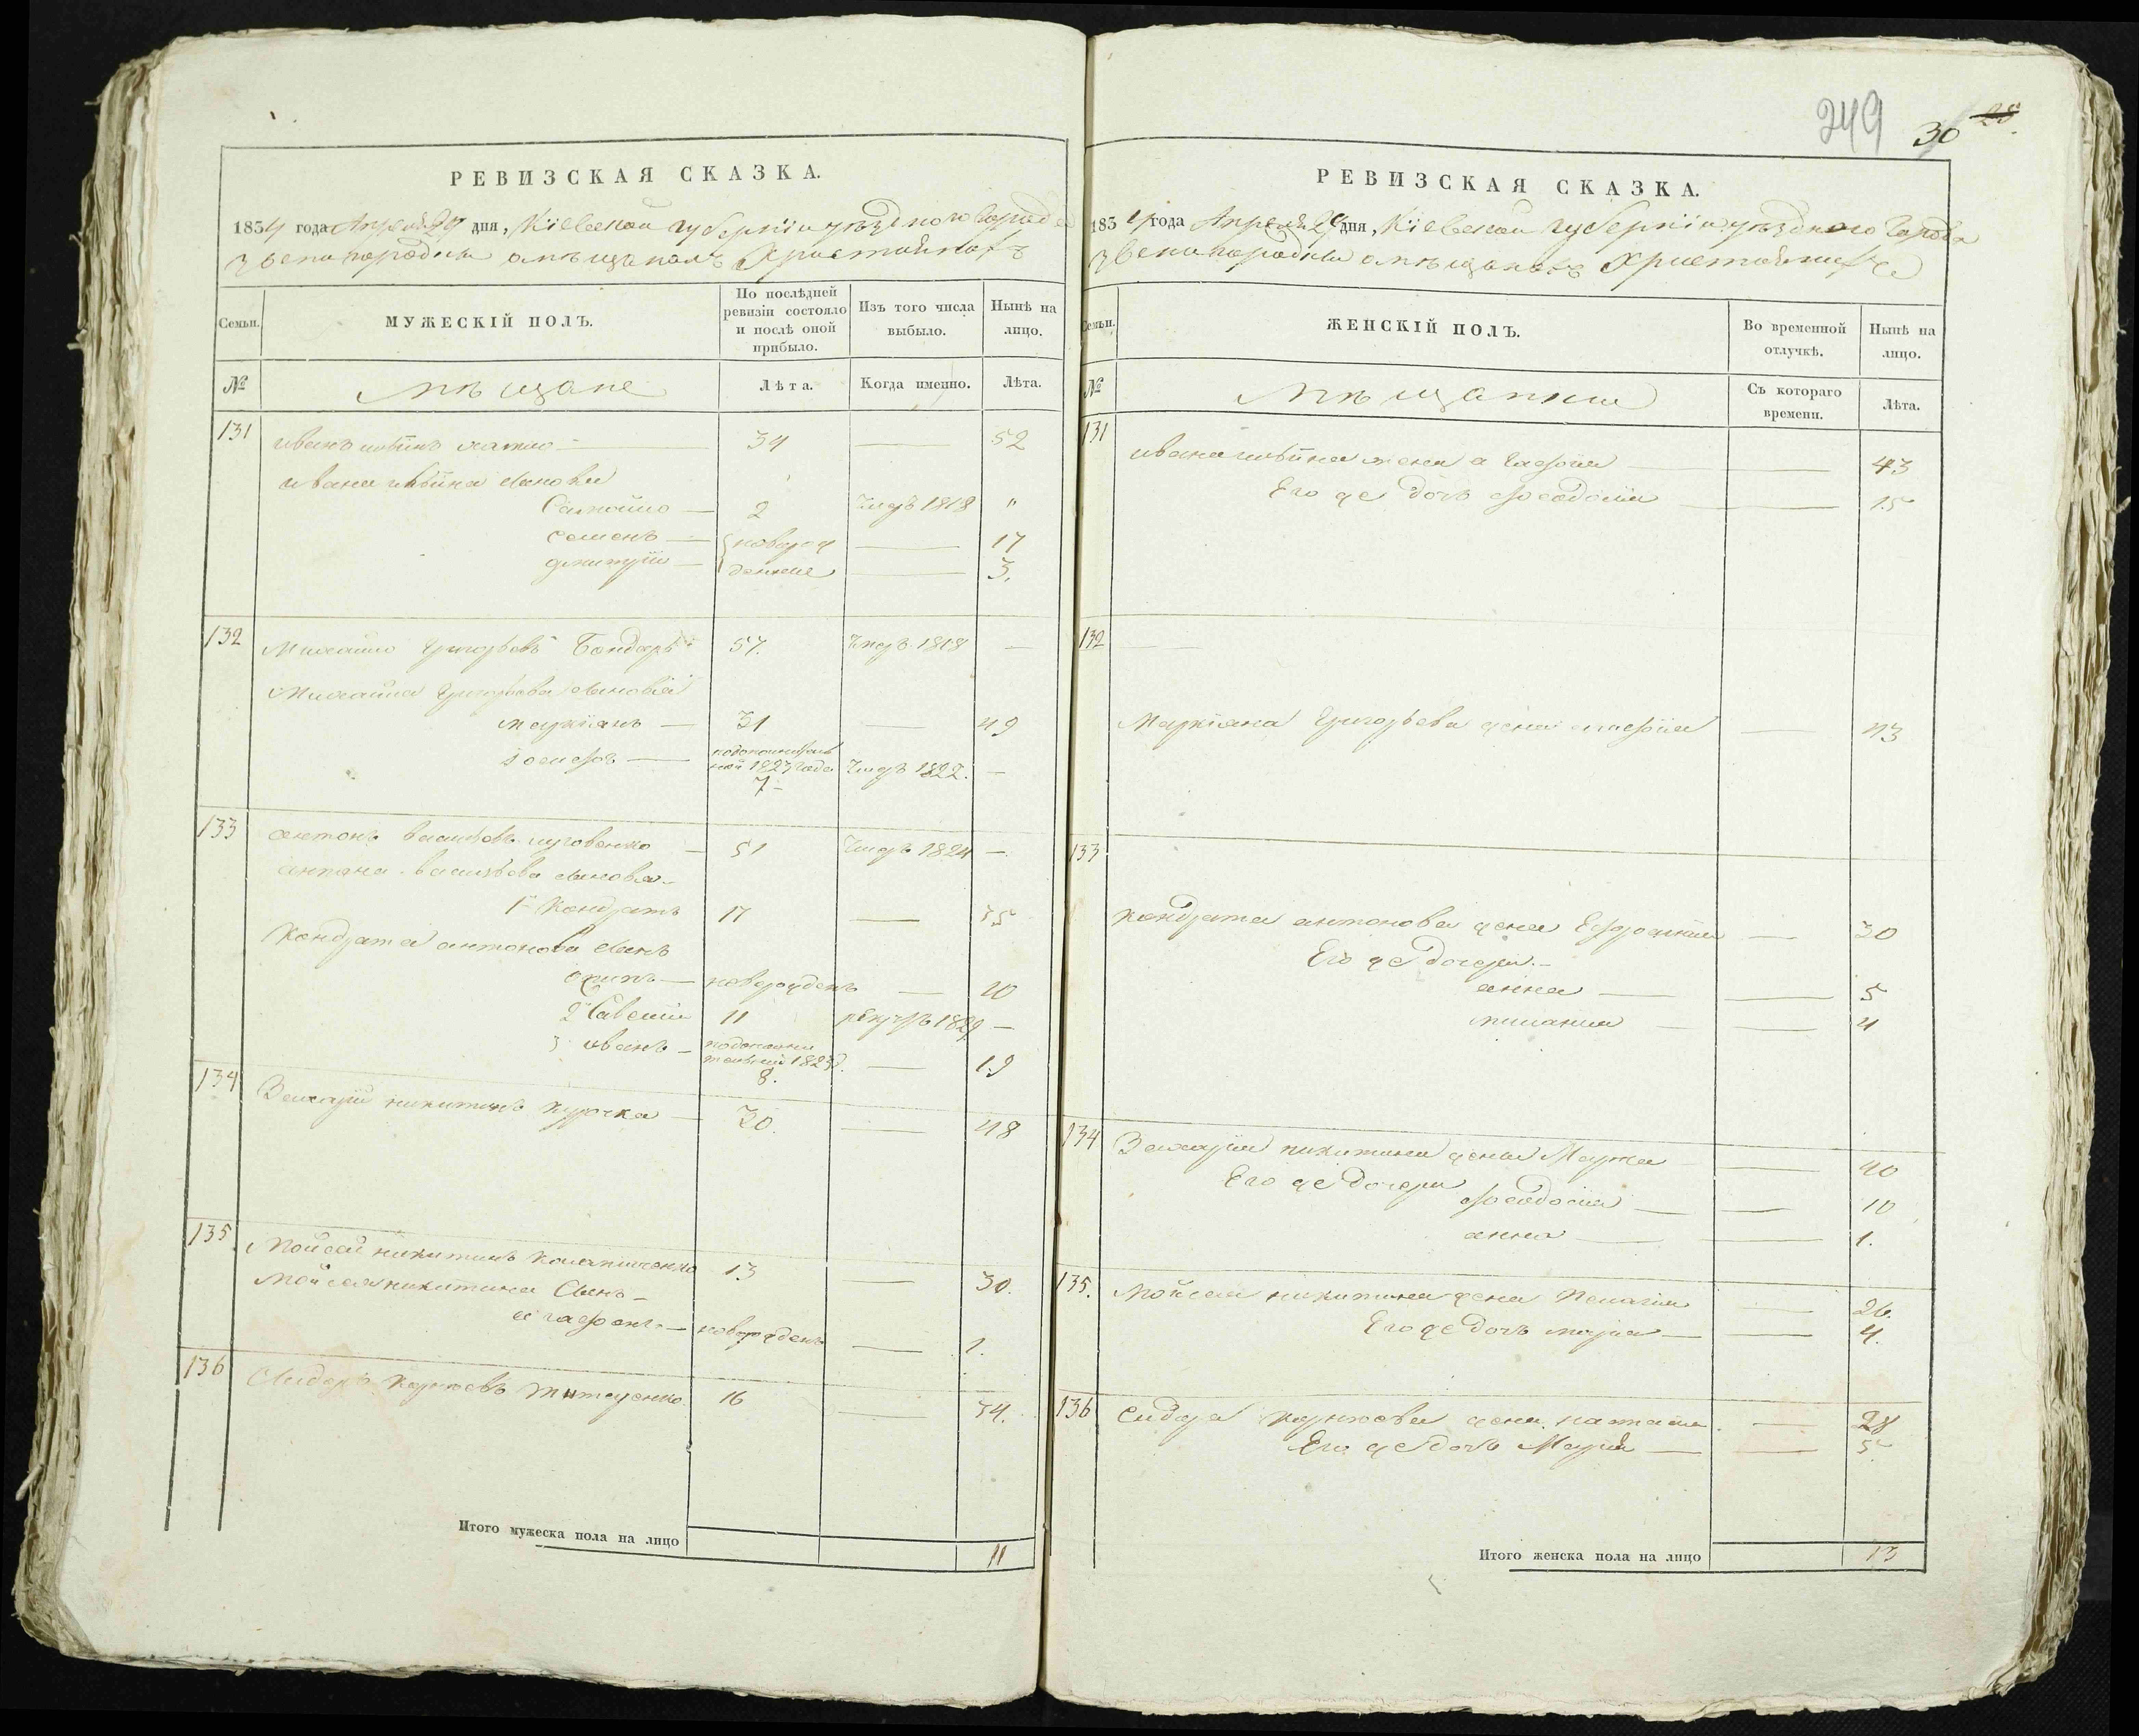 249
30 28.
РЕВИЗСКАЯ СКАЗКА.
1834 года Апреля 29 дня, Кіевской губерніи уѣзднаго города
Звенигородки о мѣщанахъ Христіянахъ
Семьи.
МУЖЕСКІЙ ПОЛЪ.
По послѣдней ревизіи состояло и послѣ оной прибыло.
Изъ того числа выбыло.
Нынѣ на лицо.
№
мѣщане
Лѣта.
Когда именно.
Лѣта.
131 Иванъ — 34 — 52
Ивана сыновья
Самойло — 2 умеръ 1818 "
Семенъ — новорож — 17
Дмитрій — денные — 3.
132 Михайло Григорьевъ Бондарь 57. умеръ 1818 —
Михайла Григорьева сыновья
Маркіянъ — 31 — 49
Іосифъ — по дополнитель
ной 1823 года умеръ 1822. —
7 —
133 Антонъ Васильевъ — 51 умеръ 1824 —
Антона Васильева сыновья —
1й Кондратъ 17 — 35
Кондрата Антонова сынъ
Осипъ — новорожденъ — 10
2й Савелій 11 рекрутъ 1829 —
3 Иванъ — по дополни
тельной 1823 г. — 19
8.
134 Захарій Никитинъ Курочка — 30. — 48
135 Мойсей Никитинъ 13 — 30.
Мойсея Никитина сынъ —
Агафонъ — новорожденъ — 1.
136 Сидоръ Карповъ 16 — 34.
Итого мужеска пола на лицо 11
РЕВИЗСКАЯ СКАЗКА.
1834 года Апреля 29 дня, Кіевской губерніи уѣзднаго города
Звенигородки о мѣщанахъ Христіянахъ
Семьи.
ЖЕНСКІЙ ПОЛЪ.
Во временной отлучкѣ.
Нынѣ на лицо.
№
мѣщанки
Съ котораго времени.
Лѣта.
131 Ивана жена Агафія — — 43
Его же дочь Феодосія — — 15
132 —
Маркіяна Григорьева жена — 43
133
Кондрата Антонова жена Ефросинія — 30
Его же дочери —
Анна — — 5
— — 4
134 Захарія Никитина жена Марфа — 40
Его же дочери
Феодосія — — 10
Анна — — 1.
135. Мойсея Никитина жена Пелагія — 26.
Его же дочь Марія — — 4.
136 Сидора Карпова жена Наталія — 28
Его же дочь Марія — — 5
Итого женска пола на лицо 13